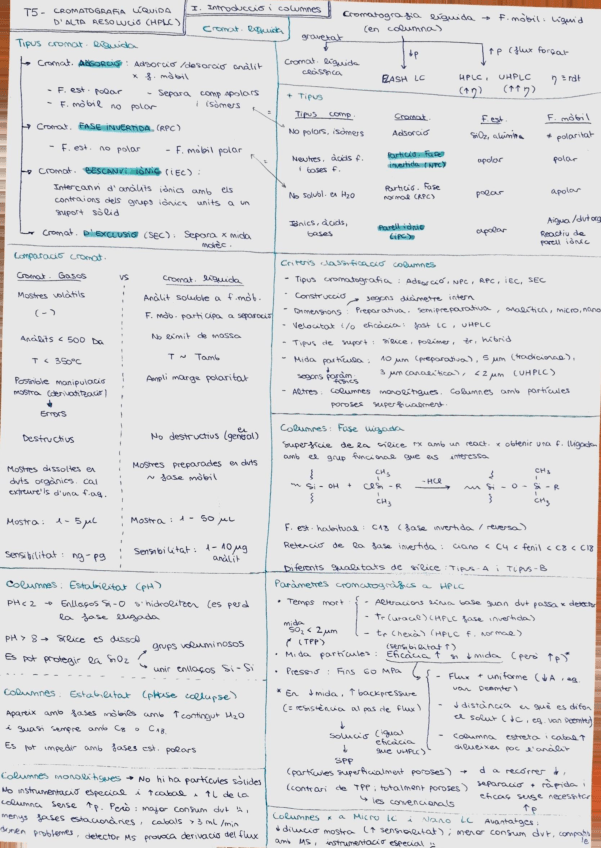 T5 - CROMATOGRAFIA LÍQUIDA
D'ALTA RESOLUCIÓ (HPLC)
I. Introducció i columnes
Cromat. líquida
Tipus cromat. líquida
Cromat. ADSORCIÓ: Adsorció/desorció anàlit
x f. mòbil
- F. est. polar
- F. mòbil no polar
- Separa comp apolars
i isòmers
Cromat. FASE INVERTIDA (RPC)
- F. est. no polar - F. mòbil polar
Cromat. BESCANVI IÒNIC (IEC):
Intercanvi d'anàlits iònics amb els
contraions dels grups iònics units a un
suport sòlid
Cromat. D'EXCLUSIÓ (SEC): Separa x mida
molèc.
Cromatografia líquida → F. mòbil: líquid
(en columna)
gravetat
↓p
↑p (flux forçat
Cromat. líquida
clàssica
FLASH LC
HPLC, UHPLC
(↑η) (↑↑η)
η = rdt
+ Tipus
Tipus comp. Cromat. F. est. F. mòbil
No polars, isòmers Adsorció SiO₂, alúmina * polaritat
Neutres, àcids f.
i bases f.
Partició. Fase
invertida (NPC)
apolar polar
No solubl. en H₂O
Partició. Fase
normal (RPC)
polar apolar
Iònics, àcids,
bases
Parell iònic
(IPC)
apolar
Aigua/dvt org
Reactiu de
parell iònic
Comparació cromat.
Cromat. Gasos VS Cromat. líquida
Mostres volàtils
(-)
Anàlit soluble a f. mòb.
F. mòb. participa a separació
Anàlits < 500 Da
No límit de massa
T < 350ºC
T ~ Tamb
Possible manipulació
mostra (derivatització)
Errors
Ampli marge polaritat
Destructius
No destructius (en
general)
Mostres dissoltes en
dvts orgànics. Cal
extreure'ls d'una f. aq.
Mostres preparades en dvts
~ fase mòbil
Mostra: 1 - 5 µL
Mostra: 1 - 50 µL
Sensibilitat: ng-pg
Sensibilitat: 1 - 10 µg
anàlit
Criteris classificació columnes
- Tipus cromatografia: Adsorció, NPC, RPC, IEC, SEC
- Construcció
segons diàmetre intern
- Dimensions: Preparativa, semipreparativa, analítica, micro, nano
- Velocitat i/o eficàcia: fast LC, UHPLC
- Tipus de suport: sílice, polímer, Zr, híbrid
- Mida partícula: 10 µm (preparativa), 5 µm (tradicional),
3 µm (analítica), < 2 µm (UHPLC)
segons paràm.
físics
- Altres: columnes monolítiques. Columnes amb partícules
poroses superficialment
Columnes: Fase lligada
Superfície de la sílice rx amb un react. x obtenir una f. lligada
amb el grup funcional que ens interessa
CH₃ CH₃
Si - OH + ClSi - R -HCl Si - O - Si - R
CH₃ CH₃
F. est. habitual: C18 (fase invertida / reversa)
Retenció de la fase invertida: ciano < C4 < fenil < C8 < C18
Diferents qualitats de sílice: Tipus-A i Tipus-B
Columnes: Estabilitat (pH)
pH < 2 → Enllaços Si-O s'hidrolitzen (es perd
la fase lligada
pH > 8 → Sílice es dissol
Es pot protegir la SiO₂
grups voluminosos
unir enllaços Si-Si
Columnes: Estabilitat (phase collapse)
Apareix amb fases mòbils amb ↑ contingut H₂O
i quasi sempre amb C8 o C18.
Es pot impedir amb fases est. polars
Columnes monolítiques → No hi ha partícules sòlides
No instrumentació especial i ↑ cabal i ↑ L de la
columna sense ↑p. Però: major consum dvt,
menys fases estacionàries, cabals > 3 mL/min
donen problemes, detector MS provoca derivació del flux
Paràmetres cromatogràfics a HPLC
Temps mort
- Alteracions línia base quan dvt passa x detector
- tr (uracil) (HPLC fase invertida)
- tr (hexà) (HPLC F. normal)
mida
SiO₂ < 2 µm
(TPP)
(sensibilitat ↑)
Mida partícules: Eficàcia ↑ si ↓ mida (però ↑p)*
Pressió: Fins 60 MPa
* En ↓ mida, ↑ backpressure
(= resistència al pas de flux)
Solució (igual
eficàcia
que UHPLC)
SPP
- Flux + uniforme (↓A, eq.
van Deemter)
- ↓ distància en què es difon
el solut (↓C, eq. van Deemter)
- Columna estreta i cabal ↑
dilueixen poc l'anàlit
(partícules superficialment poroses) → d a recórrer ↓,
(contrari de TPP, totalment poroses) separació + ràpida i
eficaç sense necessitar
↑p
les convencionals
Columnes x a Micro LC i Nano LC Avantatges:
↓ dilució mostra (↑ sensibilitat); menor consum dvt, compatible
amb MS, instrumentació especial